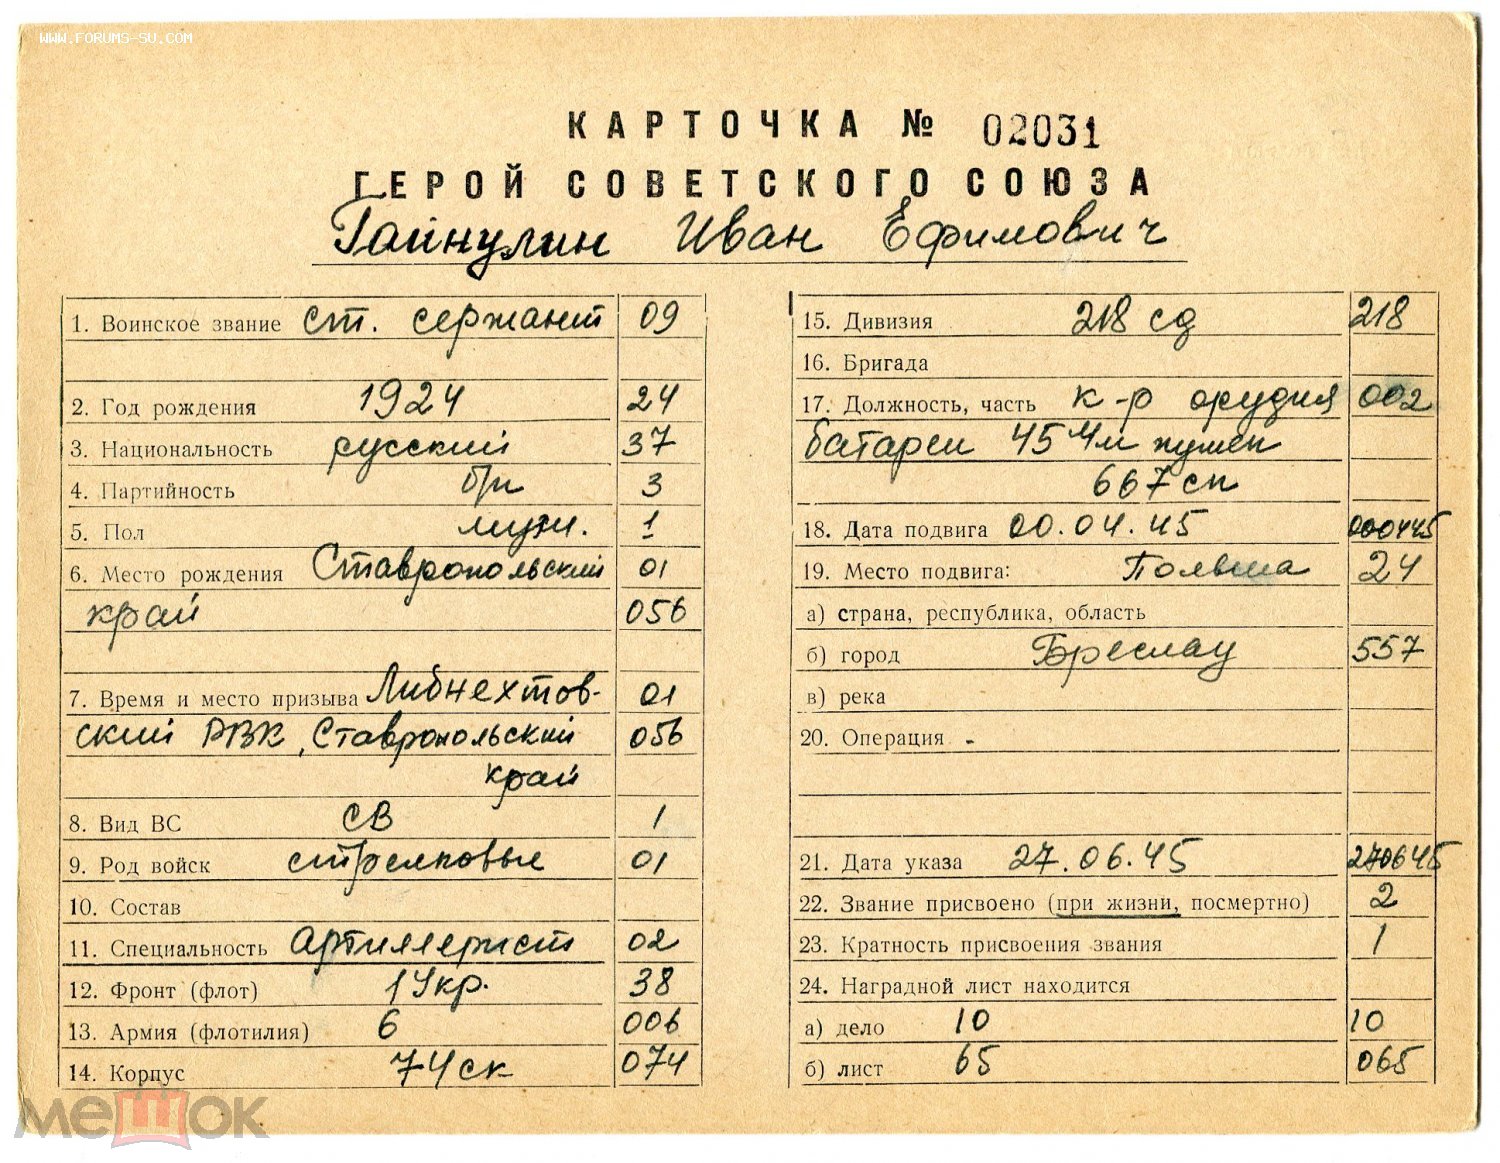 WWW.FORUMS-SU.COM
КАРТОЧКА № 02031
ГЕРОЙ СОВЕТСКОГО СОЮЗА
Гайнулин Иван Ефимович
1. Воинское звание ст. сержант 09
2. Год рождения 1924 24
3. Национальность русский 37
4. Партийность б/п 3
5. Пол муж. 1
6. Место рождения Ставропольский 01
край 056
7. Время и место призыва Либнехтов- 01
ский РВК, Ставропольский 056
край
8. Вид ВС СВ 1
9. Род войск стрелковые 01
10. Состав
11. Специальность Артиллерист 02
12. Фронт (флот) 1 Укр. 38
13. Армия (флотилия) 6 006
14. Корпус 74 ск 074
15. Дивизия 218 сд 218
16. Бригада
17. Должность, часть к-р орудия 002
батареи 45 мм пушек
667 сп
18. Дата подвига 00.04.45 000445
19. Место подвига: Польша 24
а) страна, республика, область
б) город Бреслау 557
в) река
20. Операция -
21. Дата указа 27.06.45 270645
22. Звание присвоено (при жизни, посмертно) 2
23. Кратность присвоения звания 1
24. Наградной лист находится
а) дело 10 10
б) лист 65 065
мешок